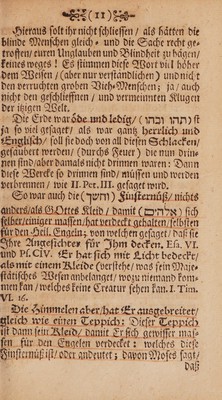 (11)
Hieraus solt ihr nicht schliessen/ als hätten die
blinde Menschen gleich, und die Sache recht ge-
troffen/ euren Unglauben und Blindheit zu bägen/
keines weges! Es stimmen diese Wort viel höher
dem Weisen/ (aber nur verständlichen) und nicht
den verruchten groben Vieh-Menschen; ja/ auch
nicht den geschliffnen/ und vermeinten Klugen
der itzigen Welt.
Die Erde war öde und ledig/ (תהו ובהו) ist
ja so viel gesaget/ als war gantz herrlich und
Englisch/ soll sie doch von all diesen Schlacken/
gesäubert werden/ (durch Feuer) die nun drin-
nen sind/ aber damals nicht drinnen waren: Dann
diese Wercke so drinnen sind/ müssen und werden
verbrennen/ wie II. Pet. III. gesagt wird.
So war auch die (וחשך) Finsternüß/ nichts
anders/ als GOttes Kleid/ damit (אלהים) sich
selbsten/ einiger massen/ hat verdeckt gehalten/ selbsten
für den Heil. Engeln; von welchen gesaget/ daß sie
Ihre Angesichter für Ihm decken. Esa. VI.
und Ps. CIV. Er hat sich mit Licht bedeckt/
als mit einem Kleide (verstehe/ was sein Maje-
stätisches Wesen anbelanget/ wozu niemand kom-
men kan/ welches keine Creatur sehen kan. I. Tim.
VI. 16.
Die Himmelen aber/ hat Er ausgebreitet/
gleich wie einen Teppich: Dieser Teppich
ist dann sein Kleid/ damit Er sich gewisser mas-
sen für den Engelen verdecket: welches diese
Finsternüß ist/ oder andeutet; davon Moses sagt/
daß